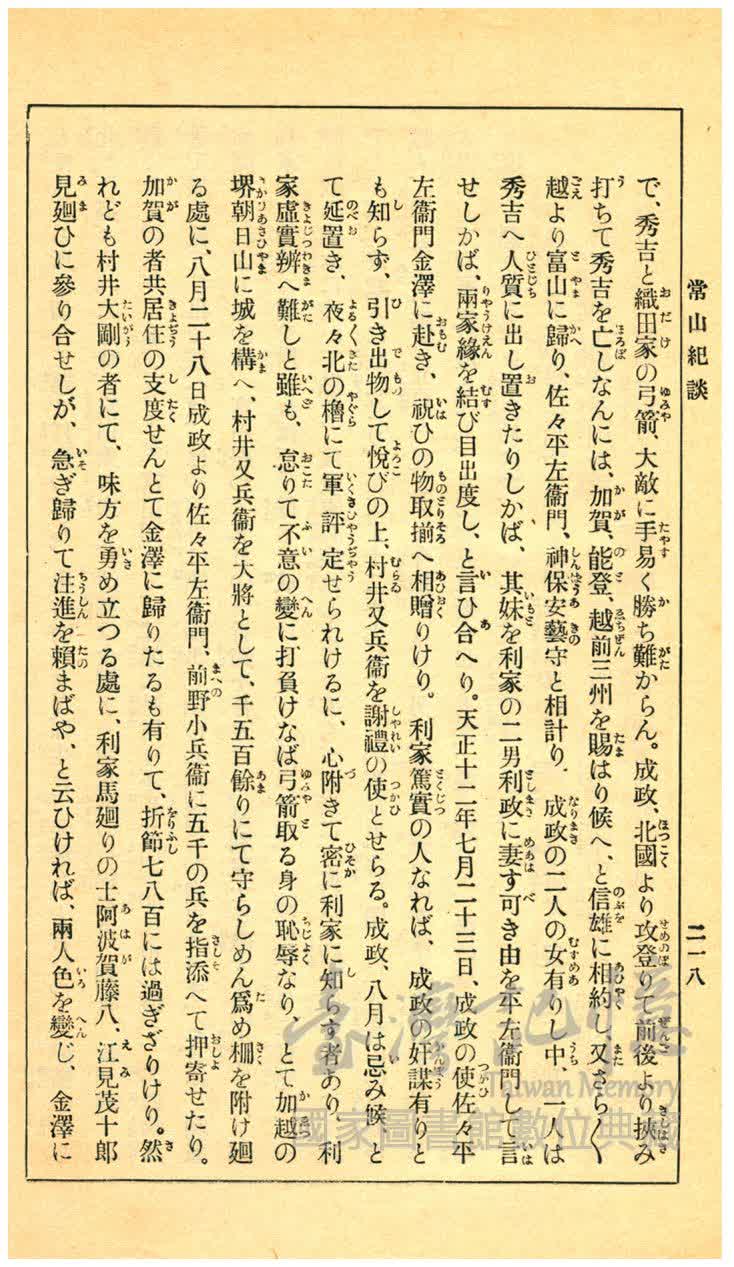 常山紀談
二一八
で、秀吉と織田家の弓箭、大敵に手易く勝ち難からん。成政、北國より攻登りて前後より挾み
打ちて秀吉を亡しなんには、加賀、能登、越前三州を賜はり候へ、と信雄に相約し、又さら〱
越より富山に歸り、佐々平左衞門、神保安藝守と相計り、成政の二人の女有りし中、一人は
秀吉へ人質に出し置きたりしかば、其妹を利家の二男利政に妻す可き由を平左衞門して言
せしかば、兩家緣を結び目出度し、と言ひ合へり。天正十二年七月二十三日、成政の使佐々平
左衞門金澤に赴き、祝ひの物取揃へ相贈りけり。利家篤實の人なれば、成政の奸謀有りと
も知らず、引き出物して悅びの上、村井又兵衞を謝禮の使とせらる。成政、八月は忌み候、と
て延置き、夜々北の櫓にて軍評定せられけるに、心附きて密に利家に知らす者あり、利
家虛實辨へ難しと雖も、怠りて不意の變に打負けなば弓箭取る身の恥辱なり、とて加越の
堺朝日山に城を構へ、村井又兵衞を大將として、千五百餘りにて守らしめん爲め柵を附け廻
る處に、八月二十八日成政より佐々平左衞門、前野小兵衞に五千の兵を指添へて押寄せたり。
加賀の者共、居住の支度せんとて金澤に歸りたるも有りて、折節七八百には過ぎざりけり。然
れども村井大剛の者にて、味方を勇め立つる處に、利家馬廻りの士阿波賀藤八、江見茂十郎
見廻ひに參り合せしが、急ぎ歸りて注進を賴まばや、と云ひければ、兩人色を變じ、金澤に
臺灣記憶
Taiwan Memory
國家圖書館數位典藏